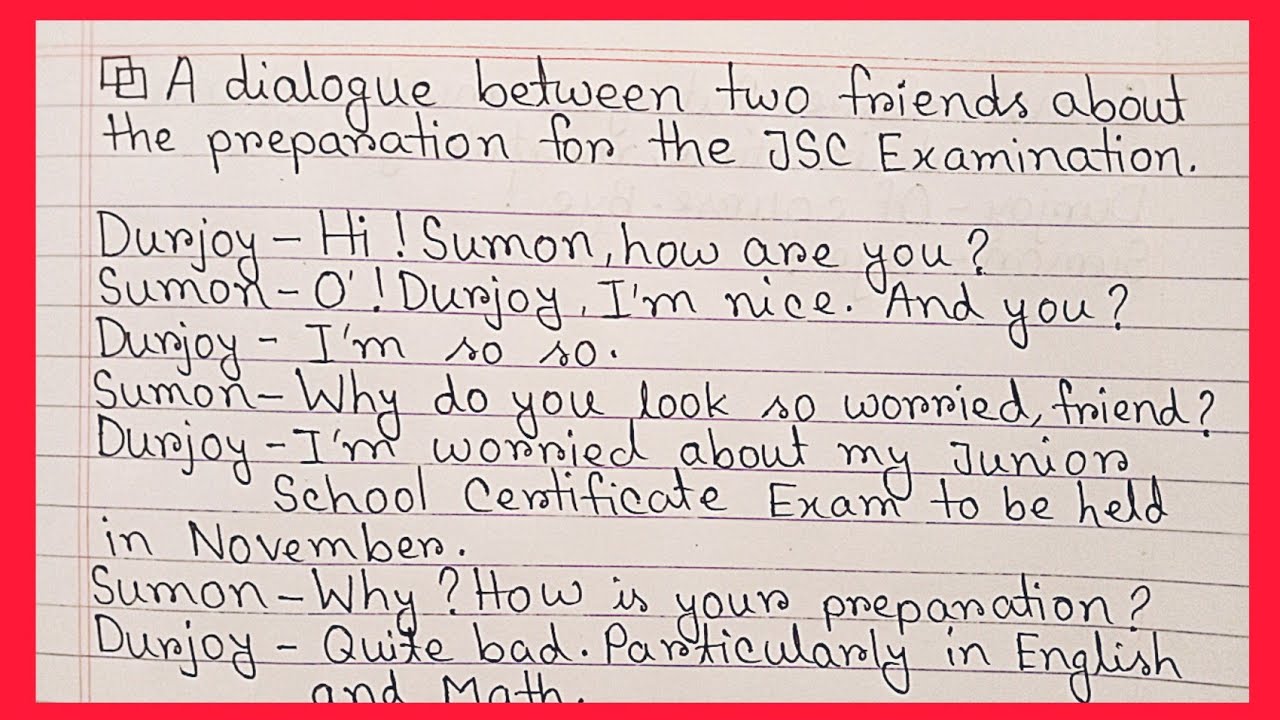 A dialogue between two friends about
the preparation for the JSC Examination.
Durjoy - Hi! Sumon, how are you?
Sumon - O'! Durjoy, I'm nice. And you?
Durjoy - I'm so so.
Sumon - Why do you look so worried, friend?
Durjoy - I'm worried about my Junior
School Certificate Exam to be held
in November.
Sumon - Why? How is your preparation?
Durjoy - Quite bad. Particularly in English
and Math.